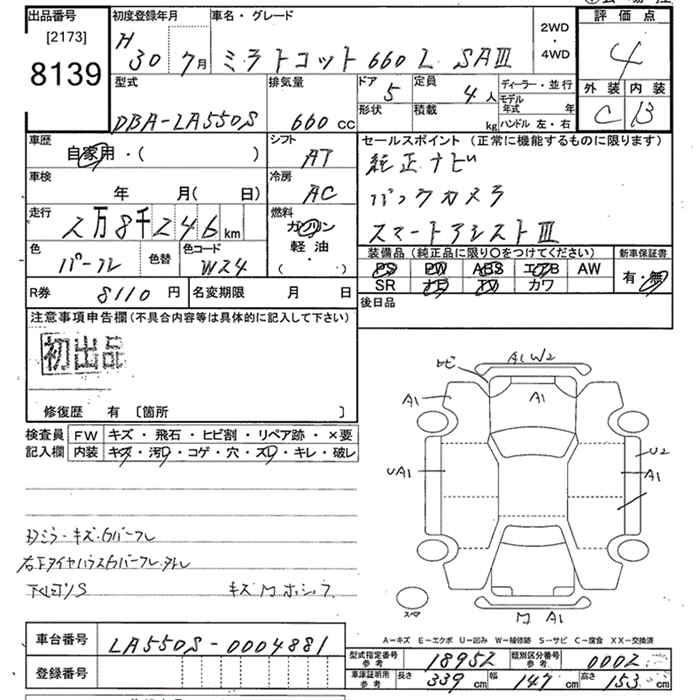 出品番号
[2173]
8139
初度登録年月
H 30 7月
車名・グレード
ミラトコット 660 L SAⅢ
2WD
・
4WD
評価点
4
外装 内装
C B
型式
DBA-LA550S
排気量
660 cc
ドア
5
定員
4人
形状
積載
kg
ディーラー・並行
モデル年式 年
ハンドル 左・右
車歴
自家用・( )
シフト
AT
車検
年 月( 日)
冷房
AC
走行
2万8千246km
燃料
ガソリン
軽油
( ・ )
色
パール
色替
色コード
W24
セールスポイント (正常に機能するものに限ります)
純正ナビ
バックカメラ
スマートアシストⅢ
装備品 (純正品に限り〇をつけてください)
PS PW ABS エアB AW
SR ナビ TV カワ
新車保証書
有・無
R券 8110 円
名変期限 月 日
後日品
注意事項申告欄(不具合内容等は具体的に記入して下さい)
初出品
修復歴 有 [箇所 ]
検査員
記入欄
FW キズ・飛石・ヒビ割・リペア跡・×要
内装 キズ・汚レ・コゲ・穴・スレ・キレ・破レ
キズ
トビ
A1W2
A1
A1
UA1
U2
A1
A1
スペア
A-キズ E-エクボ U-凹み W-補修跡 S-サビ C-腐食 XX-交換済
車台番号
LA550S-0004881
登録番号
型式指定番号
参考
18952
類別区分番号
参考
0002
車庫証明用
参考
長さ 339 cm 幅 147 cm 高さ 153 cm